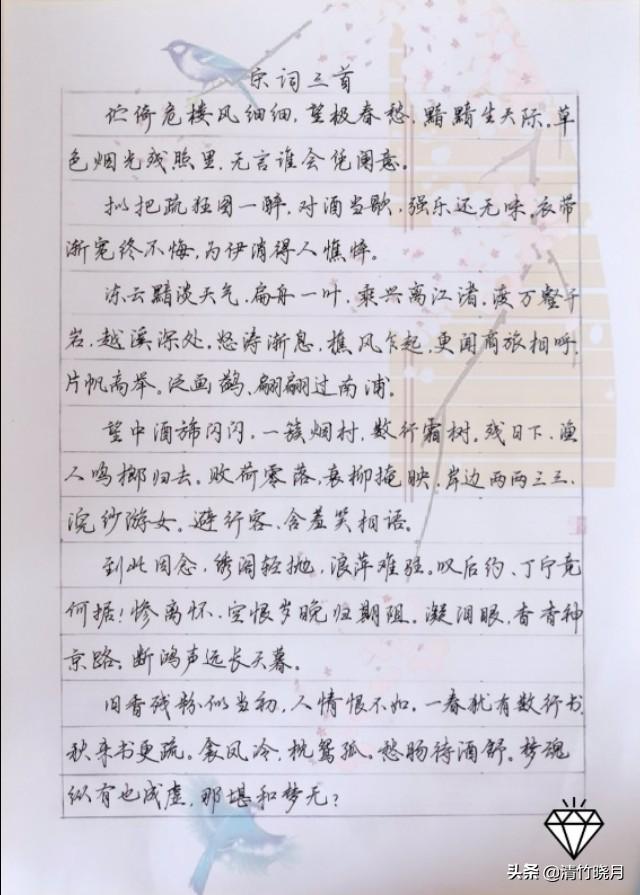 宋词三首
伫倚危楼风细细,望极春愁,黯黯生天际。草
色烟光残照里,无言谁会凭阑意。
拟把疏狂图一醉,对酒当歌,强乐还无味。衣带
渐宽终不悔,为伊消得人憔悴。
冻云黯淡天气,扁舟一叶,乘兴离江渚。渡万壑千
岩,越溪深处。怒涛渐息,樵风乍起,更闻商旅相呼,
片帆高举。泛画鹢、翩翩过南浦。
望中酒旆闪闪,一簇烟村,数行霜树。残日下、渔
人鸣榔归去。败荷零落,衰柳掩映,岸边两两三三、
浣纱游女。避行客、含羞笑相语。
到此因念,绣阁轻抛,浪萍难驻。叹后约、丁宁竟
何据!惨离怀、空恨岁晚归期阻。凝泪眼、杳杳神
京路,断鸿声远长天暮。
旧香残粉似当初,人情恨不如。一春犹有数行书,
秋来书更疏。衾凤冷,枕鸳孤。愁肠待酒舒。梦魂
纵有也成虚,那堪和梦无?
头条 @清竹晓月